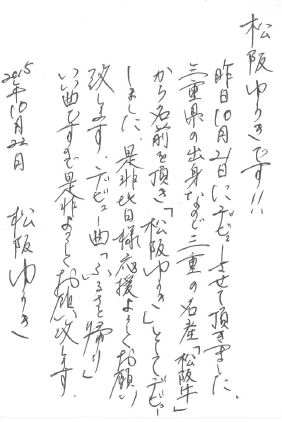 松阪ゆうきです!!
昨日10月21日にデビューさせて頂きました。
三重県の出身なので三重の名産「松阪牛」
から名前を頂き「松阪ゆうき」としてデビュー
しました。是非皆様応援よろしくお願い
致します。デビュー曲「ふるさと帰り」
いい曲ですので是非よろしくお願い致します。
2015年10月22日
松阪ゆうき